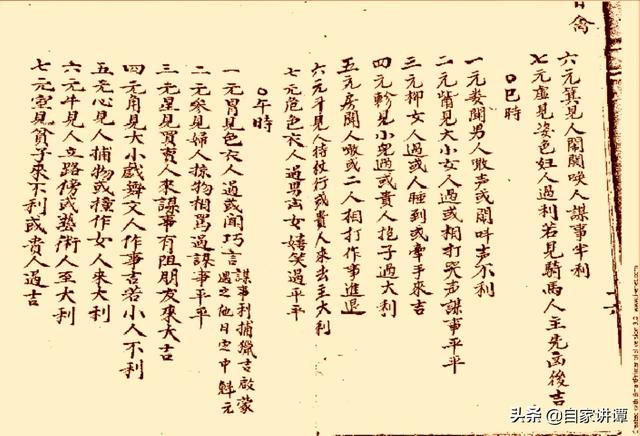 禽
六元箕見人鬧唉人謀事半利
七元虛見姿色妇人過利若見騎馬人主先凶後吉
巳時
一元娄聞男人噉声或聞叫声不利
二元觜見大小女人過或相打哭声謀事平平
三元柳女人過或人睡到或牽手來吉
四元軫見小児過或貴人抱子過大利
五元房聞人噉或二人相打作事進退
六元斗見人持杖行或貴人來出主大利
七元危色衣人過男占女嬉笑過平平
午時
一元胃見色衣人過或聞巧言
謀事利捕獵吉啟蒙
遇之他日定中魁元
二元參見婦人掠物相罵過謀事平平
三元星見買賣人來謀事有阻朋友來大吉
四元角見大小戲舞文人作事吉若小人不利
五元心見人捕物或撞作女人來大利
六元牛見人立路傍或藝術人至大利
七元室見貧子來不利或貴人過吉
头条 @自家讲谭